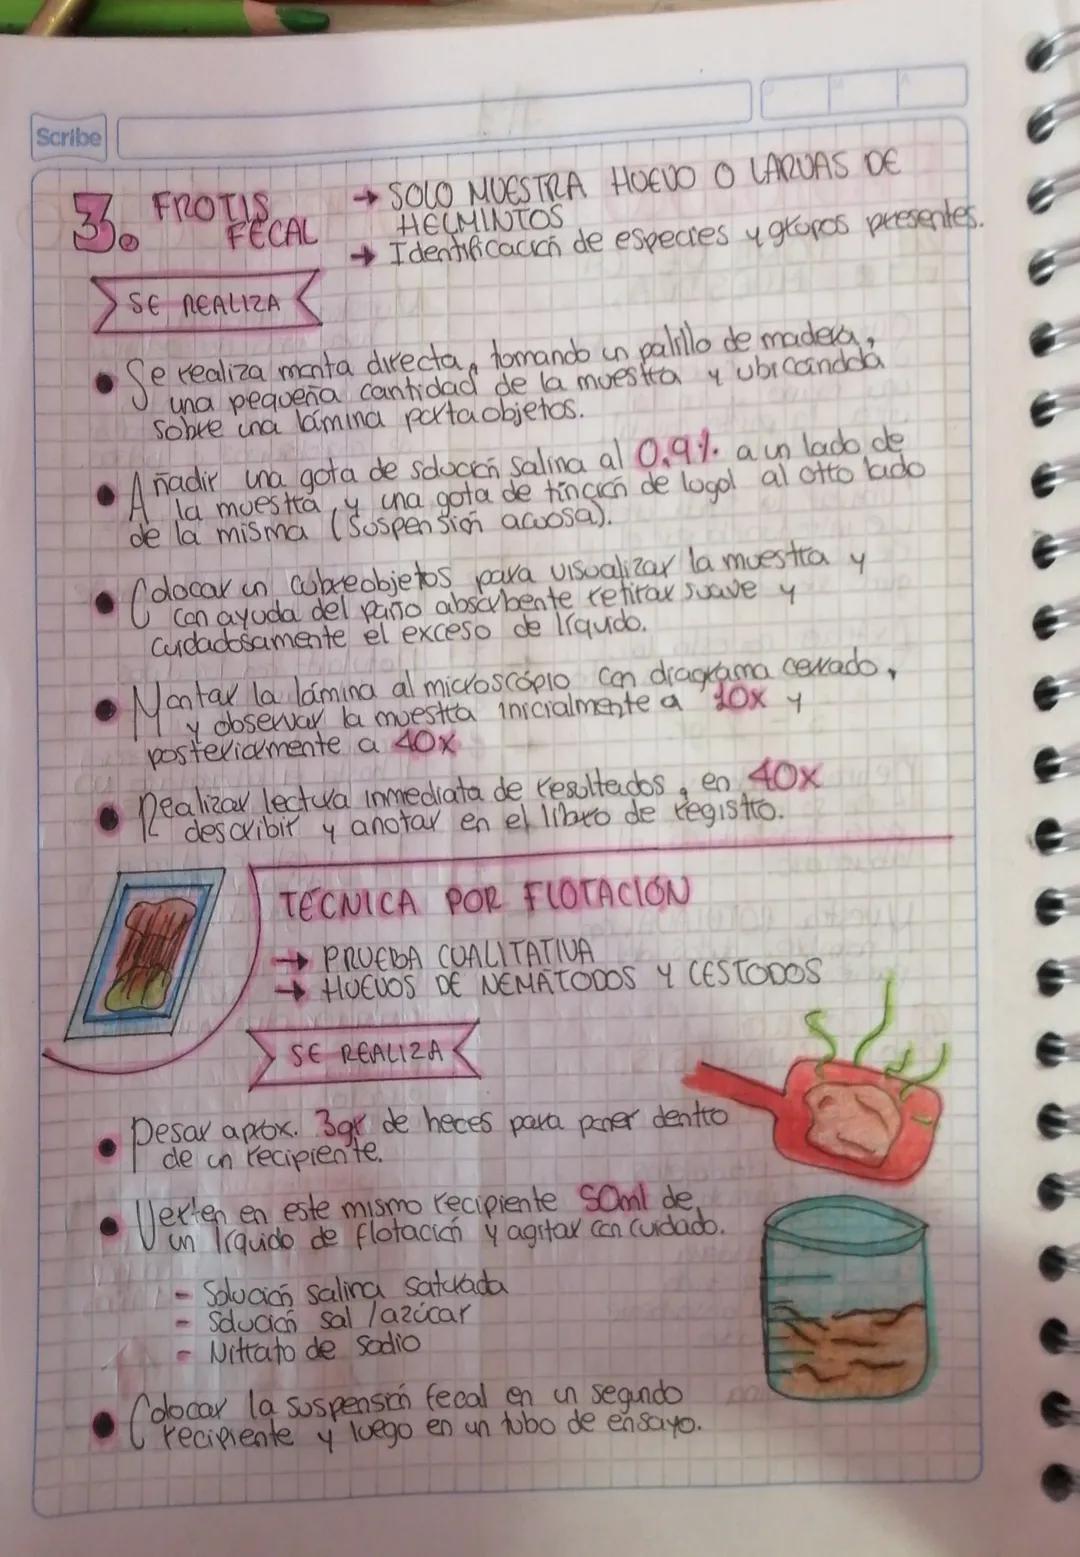 Scribe
3. FROTIS FECAL
→ SOLO MUESTRA HUEVO O LARVAS DE
HELMINTOS
→ Identificación de especies y grupos presentes.
SE REALIZA
• Se realiza monta directa, tomando un palillo de madera,
una pequeña cantidad de la muestra y ubicandola
sobre una lámina portaobjetos.
• Añadir una gota de solución salina al 0,9% a un lado de
la muestra, y una gota de tinción de lugol al otro lado
de la misma (suspensión acuosa).
• Colocar un cubreobjetos para visualizar la muestra y
con ayuda del paño absorbente retirar suave y
cuidadosamente el exceso de líquido.
• Montar la lámina al microscópio con diagrama cerrado,
y observar la muestra inicialmente a 10x y
posteriormente a 40x
• Realizar lectura inmediata de resultados, en 40x
describir y anotar en el libro de registro.
TÉCNICA POR FLOTACIÓN
→ PRUEBA CUALITATIVA
→ HUEVOS DE NEMATODOS Y CESTODOS
SE REALIZA
• Pesar aprox. 3gr de heces para poner dentro
de un recipiente.
• Verten en este mismo recipiente 50ml de
un líquido de flotación y agitar con cuidado.
- Solución salina saturada
- Solución sal /azúcar
- Nitrato de sodio
• Colocar la suspensión fecal en un segundo
recipiente y luego en un tubo de ensayo.